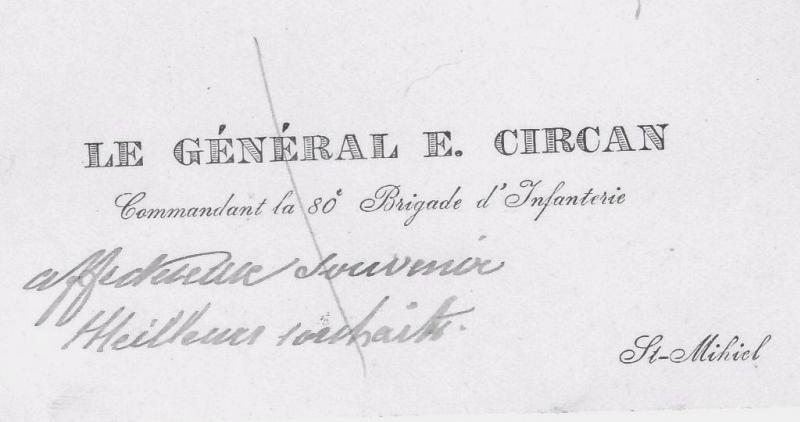 LE GÉNÉRAL E. CIRCAN
Commandant la 80e Brigade d'Infanterie
affectueux souvenir
Meilleurs souhaits.
St-Mihiel